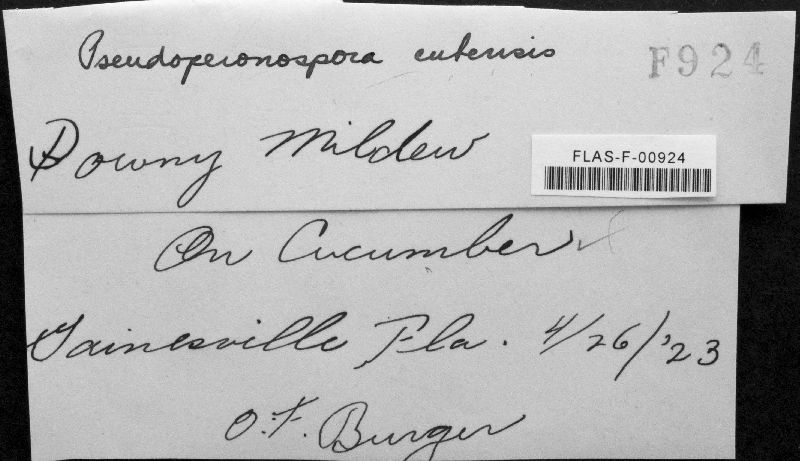 Pseudoperonospora cubensis
F924
Downy Mildew
FLAS-F-00924
On Cucumber
Gainesville Fla. 4/26/'23
O.F. Burger